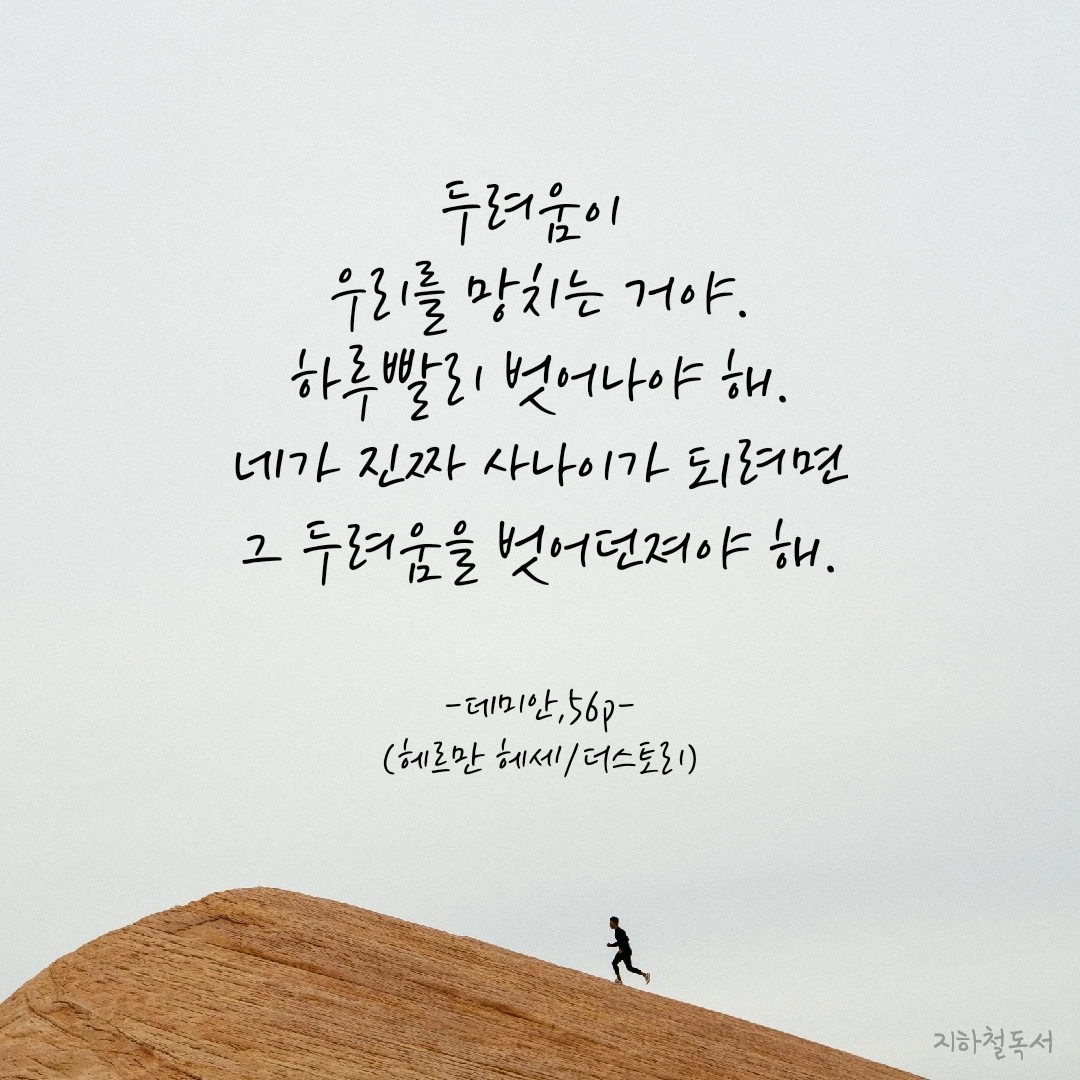 두려움이
우리를 망치는 거야.
하루빨리 벗어나야 해.
네가 진짜 사나이가 되려면
그 두려움을 벗어던져야 해.
-데미안,56p-
(헤르만 헤세/더스토리)
지하철독서